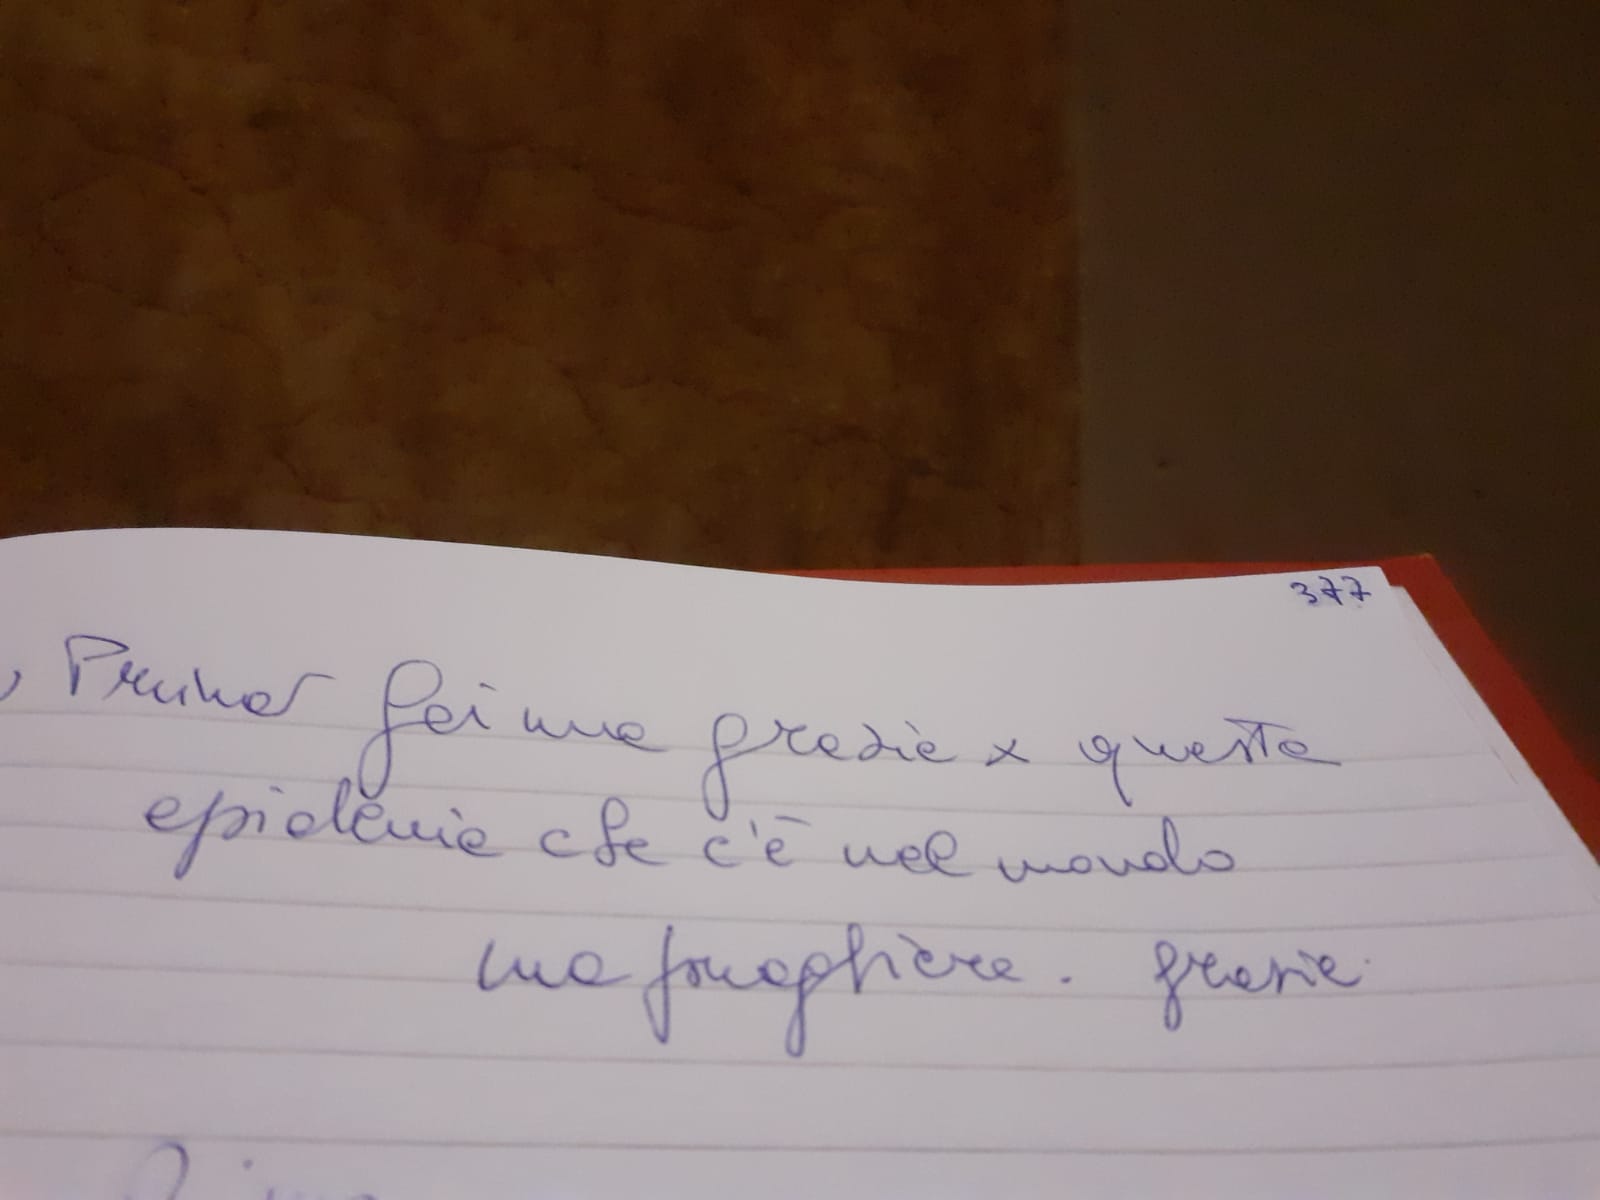 377
, Primo fai una grazia x questa
epidemia che c'è nel mondo
una preghiera. grazie.